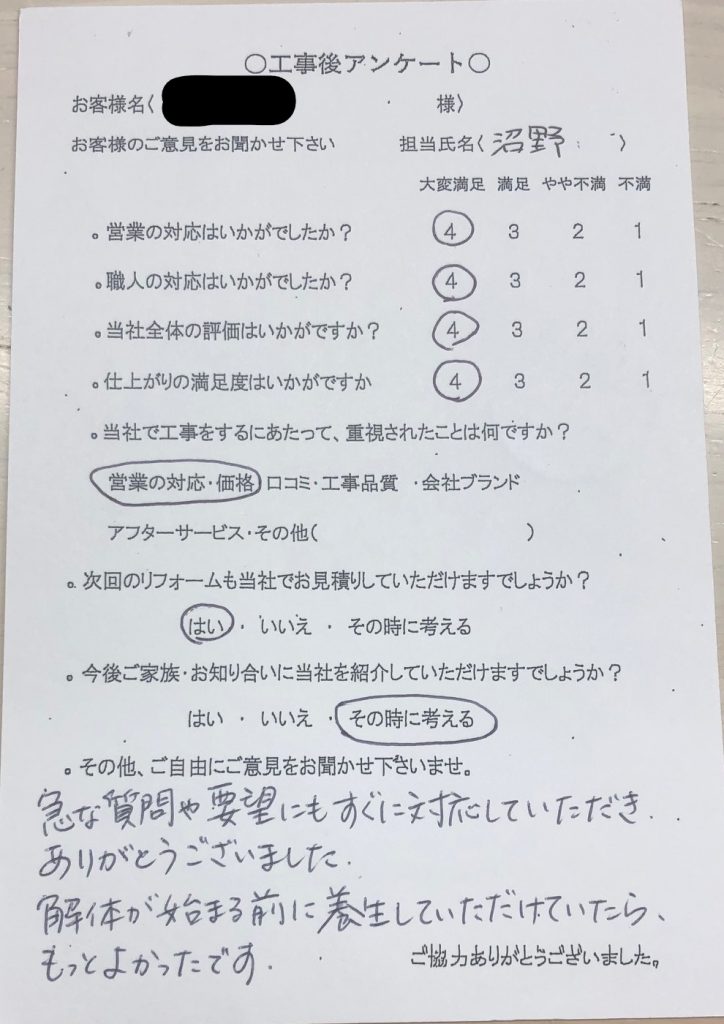 ○工事後アンケート○
お客様名( 様)
お客様のご意見をお聞かせ下さい 担当氏名(沼野 )
大変満足 満足 やや不満 不満
。営業の対応はいかがでしたか？ 4 3 2 1
。職人の対応はいかがでしたか？ 4 3 2 1
。当社全体の評価はいかがですか？ 4 3 2 1
。仕上がりの満足度はいかがですか 4 3 2 1
。当社で工事をするにあたって、重視されたことは何ですか？
営業の対応・価格 口コミ・工事品質 ・会社ブランド
アフターサービス・その他( )
。次回のリフォームも当社でお見積りしていただけますでしょうか？
はい ・ いいえ ・ その時に考える
。今後ご家族・お知り合いに当社を紹介していただけますでしょうか？
はい ・ いいえ ・ その時に考える
。その他、ご自由にご意見をお聞かせ下さいませ。
急な質問や要望にもすぐに対応していただき、
ありがとうございました。
解体が始まる前に養生していただけていたら、
もっとよかったです。
ご協力ありがとうございました。